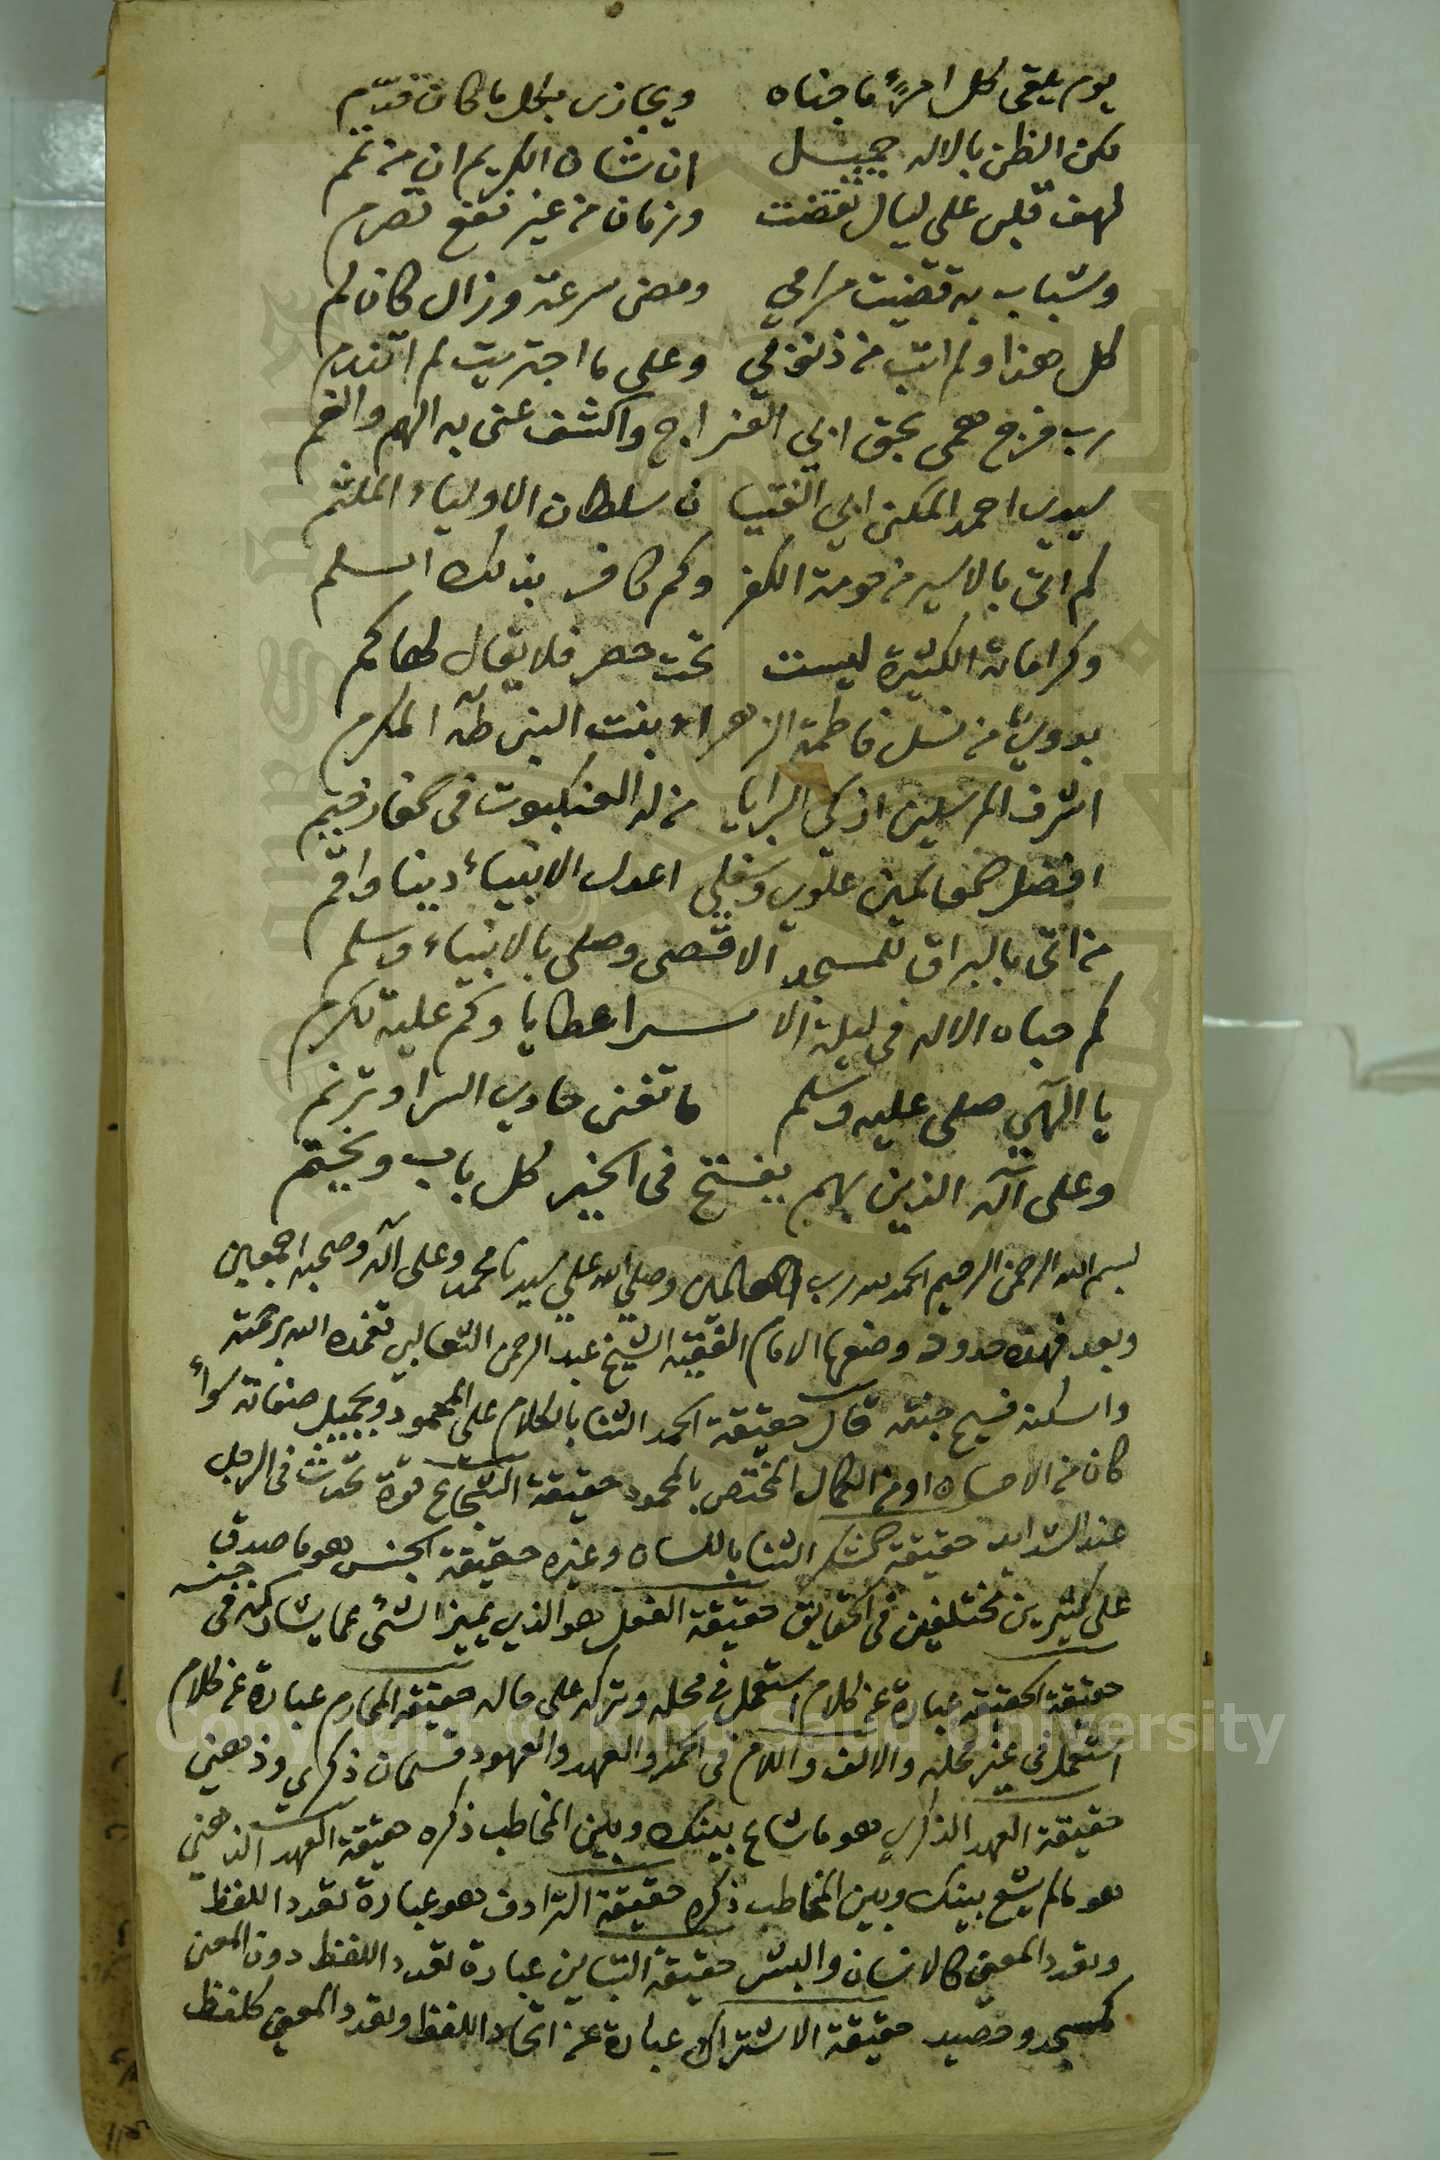 يوم يلقى كل امرءٍ ما جناه ويجازى بكل ما كان قدّم
لكن الظن بالاله جميل ان شان الكريم ان من تمم
لهف قلبى على ليال تقضت وزمان من غير نفع تصرم
وشباب به قضيت مرامي ومضى سرعة وزال كان لم
كل هذا ولم اتب من ذنوبي وعلى ما اجتريت لم اتندم
رب فرج همى بحق ابي الفراج واكشف عنى به الهم والغم
سيدى احمد المكنى ابي الفتيا ن سلطان الاولياء الملثم
كم اتى بالاسير من حومة الكفر وكم كافر بذلك اسلم
وكراماته الكثيرة ليست تحت حصر فلا يقال لها كم
بدوىٌ من نسل فاطمة الزهراء بنت النبى طه المكرم
اشرف المرسلين ازكي البرايا من له العنكبوت فى الغار خيم
افضل العالمين علوى وسفلي اعدل الانبياء دينا واقم
من اتى بالبراق للمسجد الاقصى وصلى بالانبياء وسلم
كم حباه الاله فى ليلة الاسرا عطايا وكم عليه تكرم
يا الهي صلى عليه وسلم ما تغنى حادى السرا وترنم
وعلى آله الذين بهم يفتح فى الخير كل باب ويختم
بسم الله الرحمن الرحيم الحمد لله رب العالمين وصلي الله علي سيدنا محمد وعلى آله وصحبه اجمعين
وبعد فهذه حدود وضعها الامام الفقيه الشيخ عبد الرحمن الثعالبي تغمده الله برحمته
واسكنه فسيح جنته قال حقيقة الحمد الثنا بالكلام على المحمود بجميل صفاته سواء
كان من الاحسان او من الكمال المختص بالمحمود حقيقة الشجاع قوة تحدث فى الرجل
عند الشدايد حقيقة الشكر الثنا باللسان وغيره حقيقة الجنس هو ما صدق
على كثيرين مختلفين فى الحقايق حقيقة الفصل هو الذي يميز الشئ عما يشاركه فى جنسه
حقيقة الحقيقة عبارة عن كلام استعمل فى محله وتركه على حاله حقيقة المجاز عبارة عن كلام
استعمل فى غير محله والالف واللام فى الحمد والعهد والعهود قسمان ذكري وذهني
حقيقة العهد الذكري هو ما شاع بينك وبين المخاطب ذكره حقيقة العهد الذهني
هو ما لم يشع بينك وبين المخاطب ذكره حقيقة الترادف هو عبارة تعدد اللفظ
وتعدد المعنى كالانسان والبشر حقيقة التباين عبارة تعدد اللفظ دون المعنى
كمسجد وحصيد حقيقة الاشتراك عبارة عن اتحاد اللفظ وتعدد المعنى كلفظ
Copyright © King Saud University